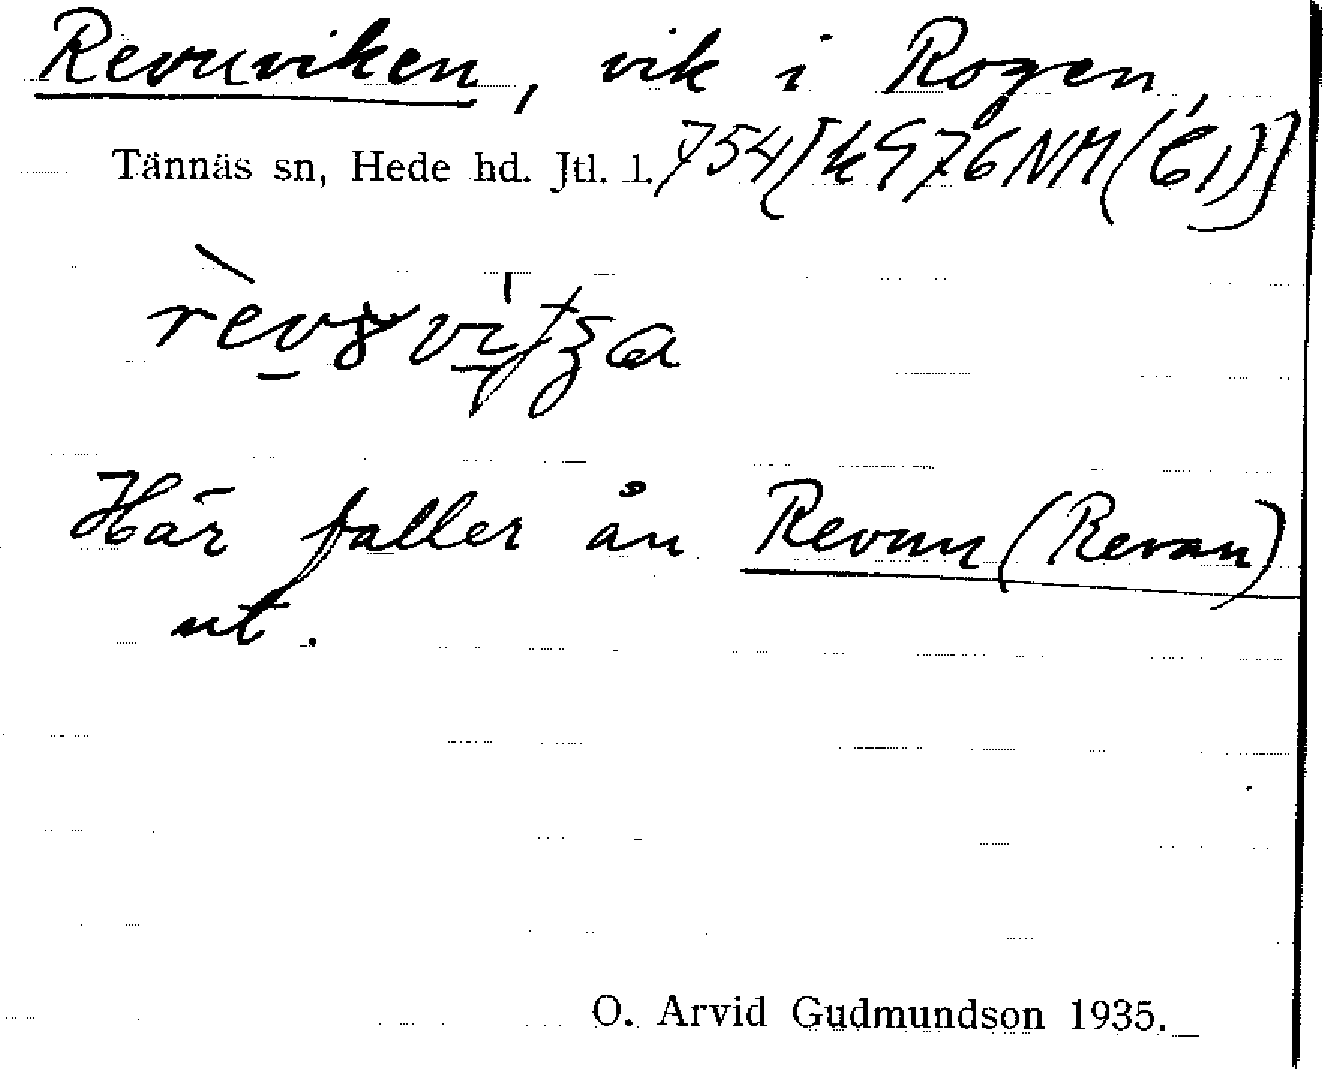 Revuviken, vik i Rogen,
Tännäs sn, Hede hd. Jtl. l. 754[k976NM(61)]
Här faller ån Revun (Revan)
ut.
O. Arvid Gudmundson 1935.